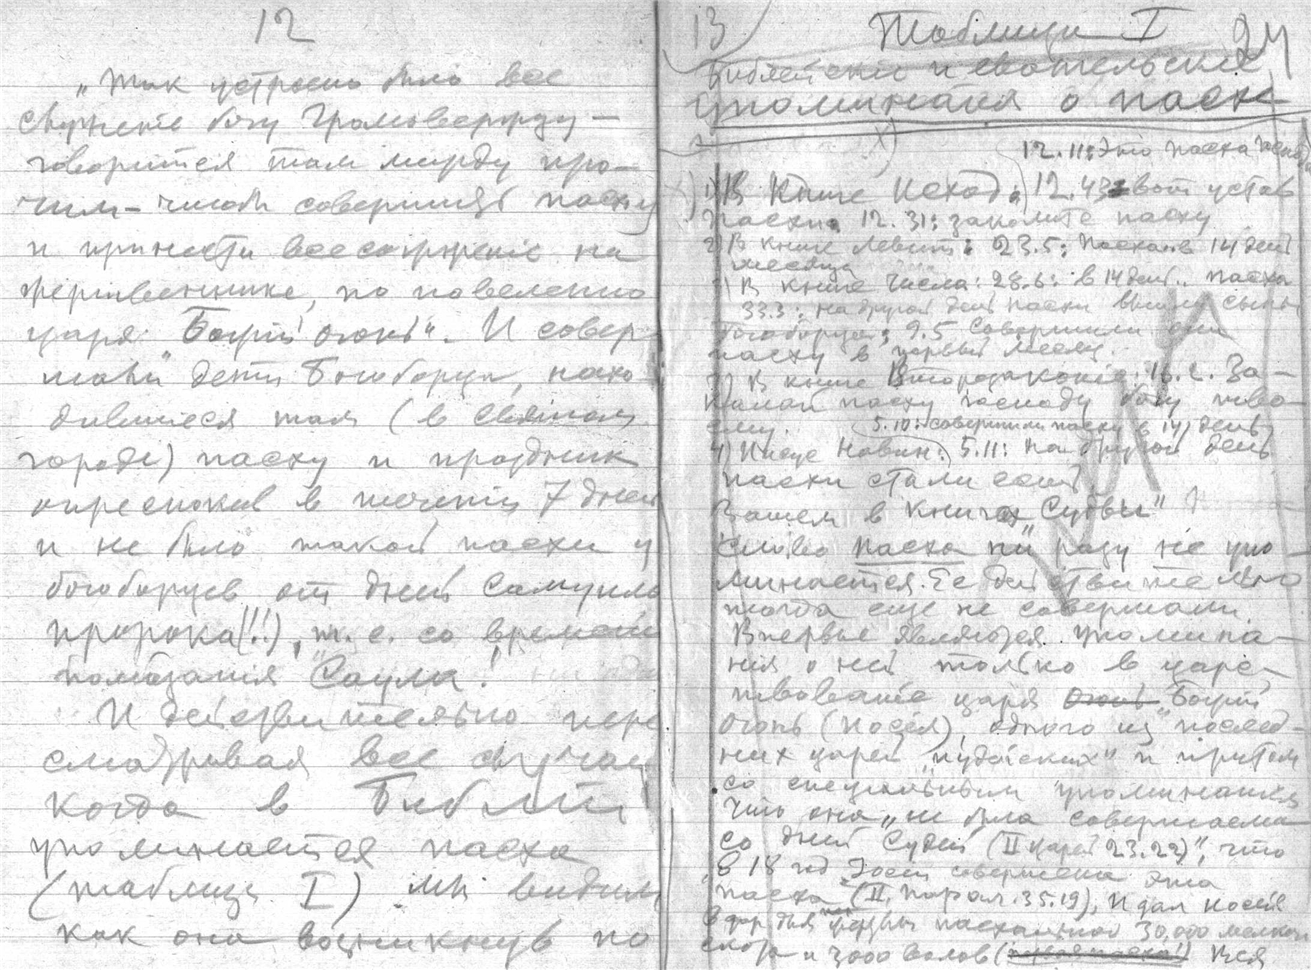 12
„Так устроено было все
служение богу Громовержцу —
говорится там между про-
чим — чтобы совершить пасху
и принести всесожжение на
жертвеннике, по повелению
царя „Божий огонь“. И совер-
шали дети Богоборца, нахо-
дившиеся там (в святом
городе) пасху и праздник
опресноков в течении 7 дней
и не было такой пасхи у
богоборцев от дней Самуила
пророка (!!), т. е. со времени
помазания Саула!
И действительно пере
сматривая все случаи
когда в Библии
упоминается пасха
(таблица I) мы видим
как она возникнув по
13 Таблица I 24
Библейские и евангельские
упоминания о пасхе
12.11: Это пасха
1) В Книге Исход: 12.43 вот устав
пасхи. 12.31: заколите пасху
2) В книге Левит: 23.5: Пасха в 14 день
месяца
3) В книге Числа: 28.6: в 14 день пасха
33.3: на другой день пасхи вышли сыны
богоборца; 9.5 Совершили они
пасху в первый месяц.
3) В книге Второзакония: 16.2. За-
калай пасху господу богу твое-
му. (5.10: совершили пасху в 14 день
4) Иисус Навин: 5.11: на другой день
пасхи стали есть
Затем в книгах „Судьи“
слово пасха ни разу не упо-
минается. Ее действительно
тогда еще не совершали.
Впервые являются упомина-
ния о ней только в царс-
твование царя Огонь Божий
огонь (Иосея), одного из „послед-
них царей „иудейских“ и притом
со специальным упоминанием
что она „не была совершаема
со дней Судей (II Царей 23.22)“, что
„в 18 год Иосии совершена эта
пасха (II Парал. 35.19), и дал Иосия
в дар для жертвы пасхальной 30,000 мелкого
скота и 3000 волов (первая пасха!) Вся